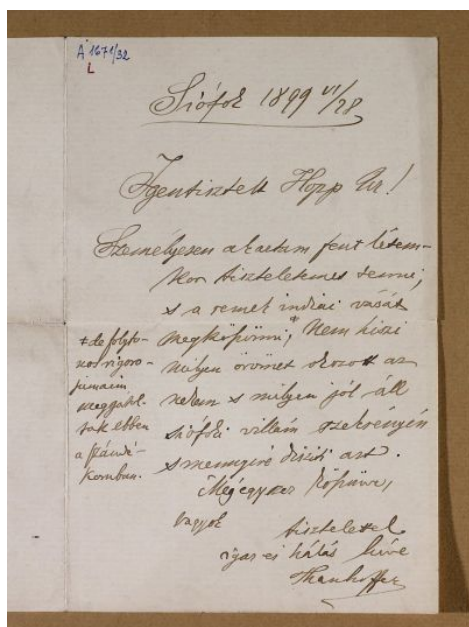 A 1671/32
L
Siófok 1899 VI/28
Igentisztelt Hopp Úr!
Személyesen akartam fent létem-
kor tiszteletemet tenni,
s a remek indiai vázát
megköszönni; Nem hiszi
milyen örömet okozott az
nekem s milyen jól áll
siófoki villám szekrényén
s mennyire díszíti azt.
Mégegyszer köszönve,
vagyok
tisztelettel
igaz és hálás híve
Thanhoffer
+ de folyto-
nos rigoro-
sumaim
meggátol-
tak ebben
a szándé-
komban.